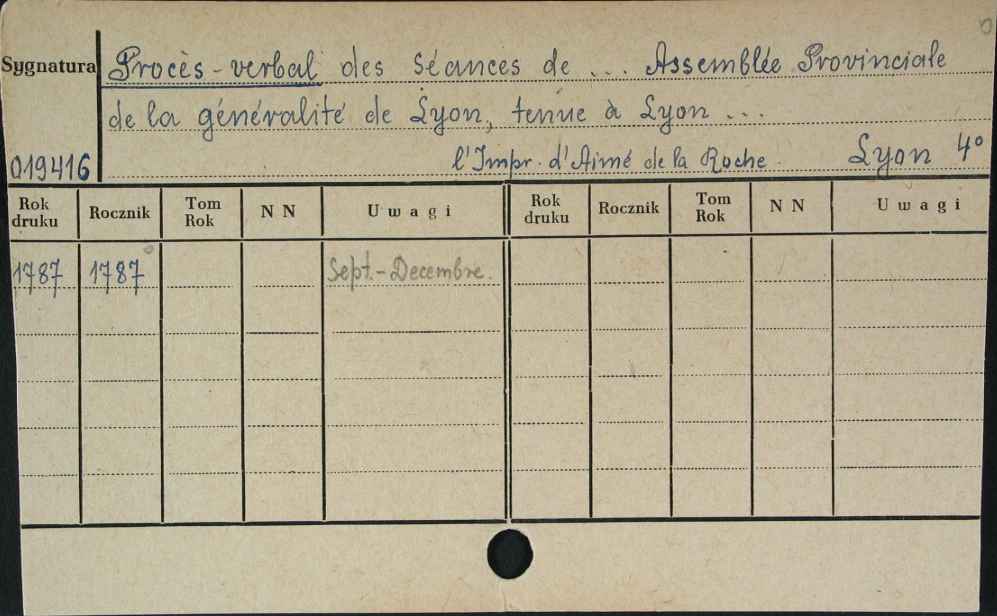 Sygnatura
Procès-verbal des Séances de ... Assemblée Provinciale
de la généralité de Lyon, tenue à Lyon ...
019416 l'Impr. d'Aimé de la Roche Lyon 4°
Rok druku Rocznik Tom Rok N N Uwagi Rok druku Rocznik Tom Rok N N Uwagi
1787 1787 Sept.-Decembre.